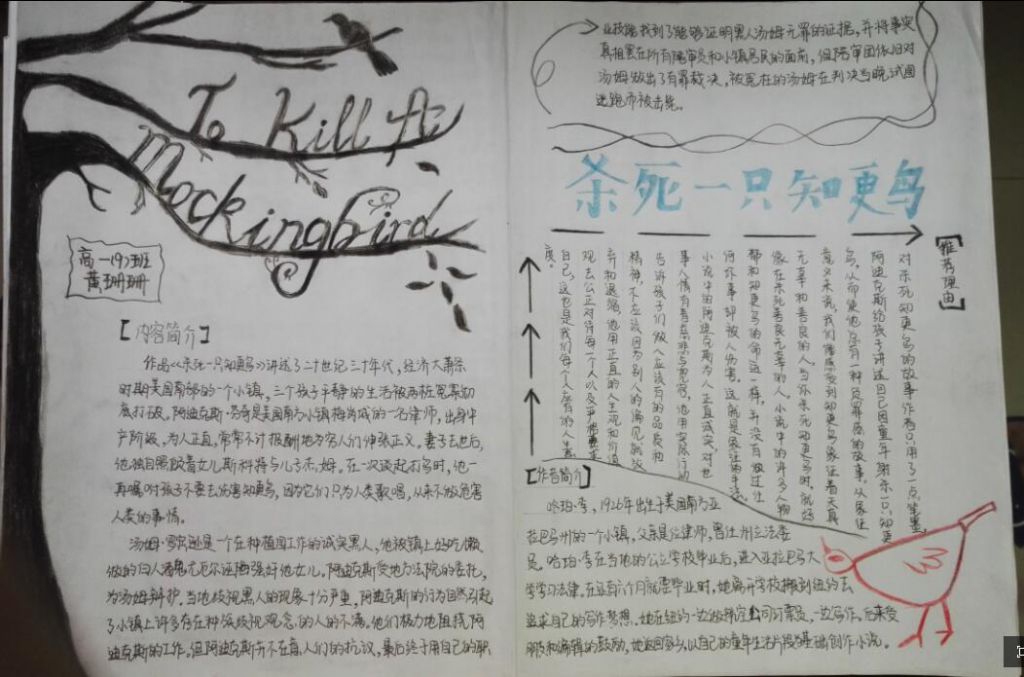 To Kill A
Mockingbird
高一(9)班
黄珊珊
【内容简介】
作品《杀死一只知更鸟》讲述了二十世纪三十年代，经济大萧条
时期美国南部的一个小镇，三个孩子平静的生活被两桩冤案彻
底打破。阿迪克斯·芬奇是美国南方小镇梅岗城的一名律师，出身中
产阶级，为人正直，常常不计报酬地为穷人们伸张正义，妻子去世后，
他独自照顾着女儿斯科特与儿子杰姆。在一次谈起打鸟时，他一
再嘱咐孩子不要去伤害知更鸟，因为它们只为人类歌唱，从来不做危害
人类的事情。
汤姆·鲁宾逊是一个在种植园工作的诚实黑人，他被镇上好吃懒
做的白人鲍勃尤厄尔诬陷强奸他女儿。阿迪克斯受地方法院的委托，
为汤姆辩护。当地歧视黑人的现象十分严重，阿迪克斯的行为自然引起
了小镇上许多存在种族歧视观念的人的不满。他们极力地阻挠阿
迪克斯的工作。但阿迪克斯并不在意人们的抗议，最后终于用自己的职
业技能找到了能够证明黑人汤姆无罪的证据，并将事实
真相摆在所有陪审员和小镇居民的面前，但陪审团依旧对
汤姆做出了有罪裁决，被冤枉的汤姆在判决当晚试图
逃跑而被击毙。
杀死一只知更鸟
【推荐理由】
对杀死知更鸟的故事作者只用了一点笔墨，
阿迪克斯给孩子讲述自己因童年射杀一只知更
鸟，从而使他总有一种负罪感的故事。从象征
意义来说，我们能感受到知更鸟象征着天真
无辜和善良的人。当你杀死知更鸟时，就好
像在杀死善良无辜的人。小说中的许多人物
都和知更鸟的命运一样，并没有做过任
何坏事却被人伤害。这就是象征的手法。
小说中的阿迪克斯为人正直诚实，对世
告诉孩子们做人应该有的品质和
精神，不应该因为别人的偏见就放
弃和退缩。他用正直的人生观和价值
观去公正对待每一个人以及
自己，这也是我们每个人应有的人生态
度。
【作者简介】
哈珀·李，1926年出生于美国南方亚
拉巴马州的一个小镇，父亲是位律师，曾任州立法委
员。哈珀·李在当地的公立学校毕业后，进入亚拉巴马大
学学习法律。在还有六个月就要毕业时，她离开学校搬到纽约去
追求自己的写作梦想。她在纽约一边做订票员，一边写作。后来受
朋友和编辑的鼓励，她返回家乡，以自己的童年生活片段为基础创作小说。